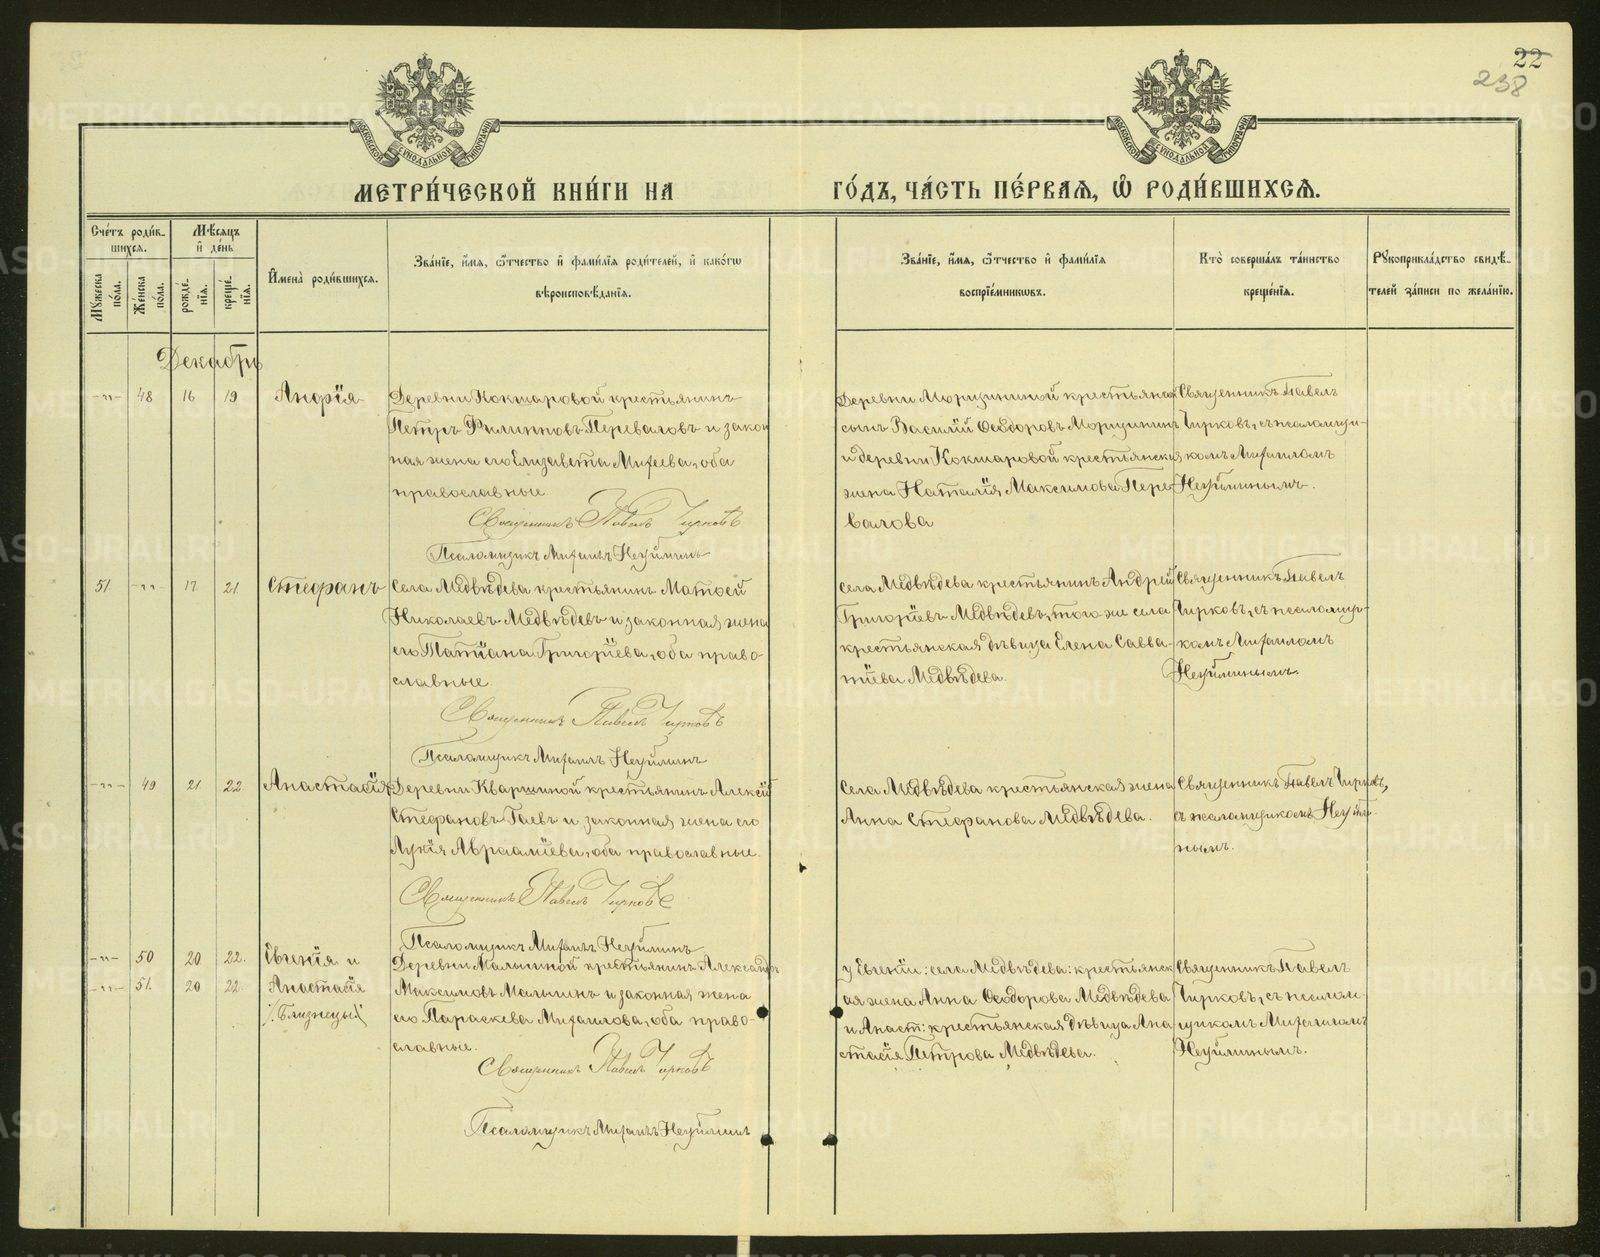 22
238
МЕТРИ́ЧЕСКОЙ КНИ́ГИ НА
ГО́ДЪ, ЧА́СТЬ ПЕ́РВАѦ, Ѡ҆ РОДИ́ВШИХСѦ.
Сче́тъ роди́в-
шихсѧ.
Мѣ́сѧцъ
и҆ де́нь
Мꙋ́жеска
по́ла.
Же́нска
по́ла.
рожде́-
нїѧ.
креще́-
нїѧ.
И҆мена̀ роди́вшихсѧ.
Зва́нїе, и҆́мѧ, ѻ҆́тчество и҆ фами́лїѧ роди́телей, и҆ како́гѡ
вѣроисповѣ́данїѧ.
Зва́нїе, и҆́мѧ, ѻ҆́тчество и҆ фами́лїѧ
воспрїе́мникѡвъ.
Кто̀ соверша́лъ та́инство
креще́нїѧ.
Рꙋкоприкла́дство свидѣ́-
телей за́писи по жела́нїю.
Декабрь
-"- 48 16 19
Деревни Кокшаровой крестьянинъ
Петръ Филипповъ Переваловъ и закон
ная жена его Елизавета Михеева, оба
православные.
Священникъ Павелъ Чирковъ
Псаломщикъ Михаилъ Неуйминъ
Деревни Моршининой крестьянской
сынъ Василій Ѳеодоровъ Моршининъ
и деревни Кокшаровой крестьянская
жена Наталія Максимова Пере-
валова
Священникъ Павелъ
Чирковъ, съ псаломщи-
комъ Михаиломъ
Неуйминымъ.
51 -"- 17 21 Стефанъ
Села Медвѣдева крестьянинъ Матѳей
Николаевъ Медвѣдевъ и законная жена
его Татіана Григоріева, оба право-
славные.
Священникъ Павелъ Чирковъ
Псаломщикъ Михаилъ Неуйминъ
Села Медвѣдева крестьянинъ Андрей
Григоріевъ Медвѣдевъ, того же села
крестьянская дѣвица Елена Савва-
тіева Медвѣдева.
Священникъ Павелъ
Чирковъ, съ псаломщи-
комъ Михаиломъ
Неуйминымъ.
-"- 49 21 22 Анастасія
Деревни Квашниной крестьянинъ Алексій
Стефановъ Гаевъ и законная жена его
Лукія Авраамiева, оба православные.
Священникъ Павелъ Чирковъ
Псаломщикъ Михаилъ Неуйминъ
Села Медвѣдева крестьянская жена
Анна Стефанова Медвѣдева.
Священникъ Павелъ Чирковъ,
съ псаломщикомъ Неуйми-
нымъ.
-"- 50 20 22. Евгенія и
-"- 51. 20 22. Анастасія
/:Близнецы:/
Деревни Малыгиной крестьянинъ Александръ
Максимовъ Малыгинъ и законная жена
его Параскева Михаилова, оба право-
славные.
Священникъ Павелъ Чирковъ
Псаломщикъ Михаилъ Неуйминъ
у Евгеніи: села Медвѣдева: крестьянск
ая жена Анна Ѳеодорова Медвѣдева
и Анаст: крестьянская дѣвица Ана
стасія Петрова Медвѣдева.
Священникъ Павелъ
Чирковъ, съ псалом-
щикомъ Михаиломъ
Неуйминымъ.